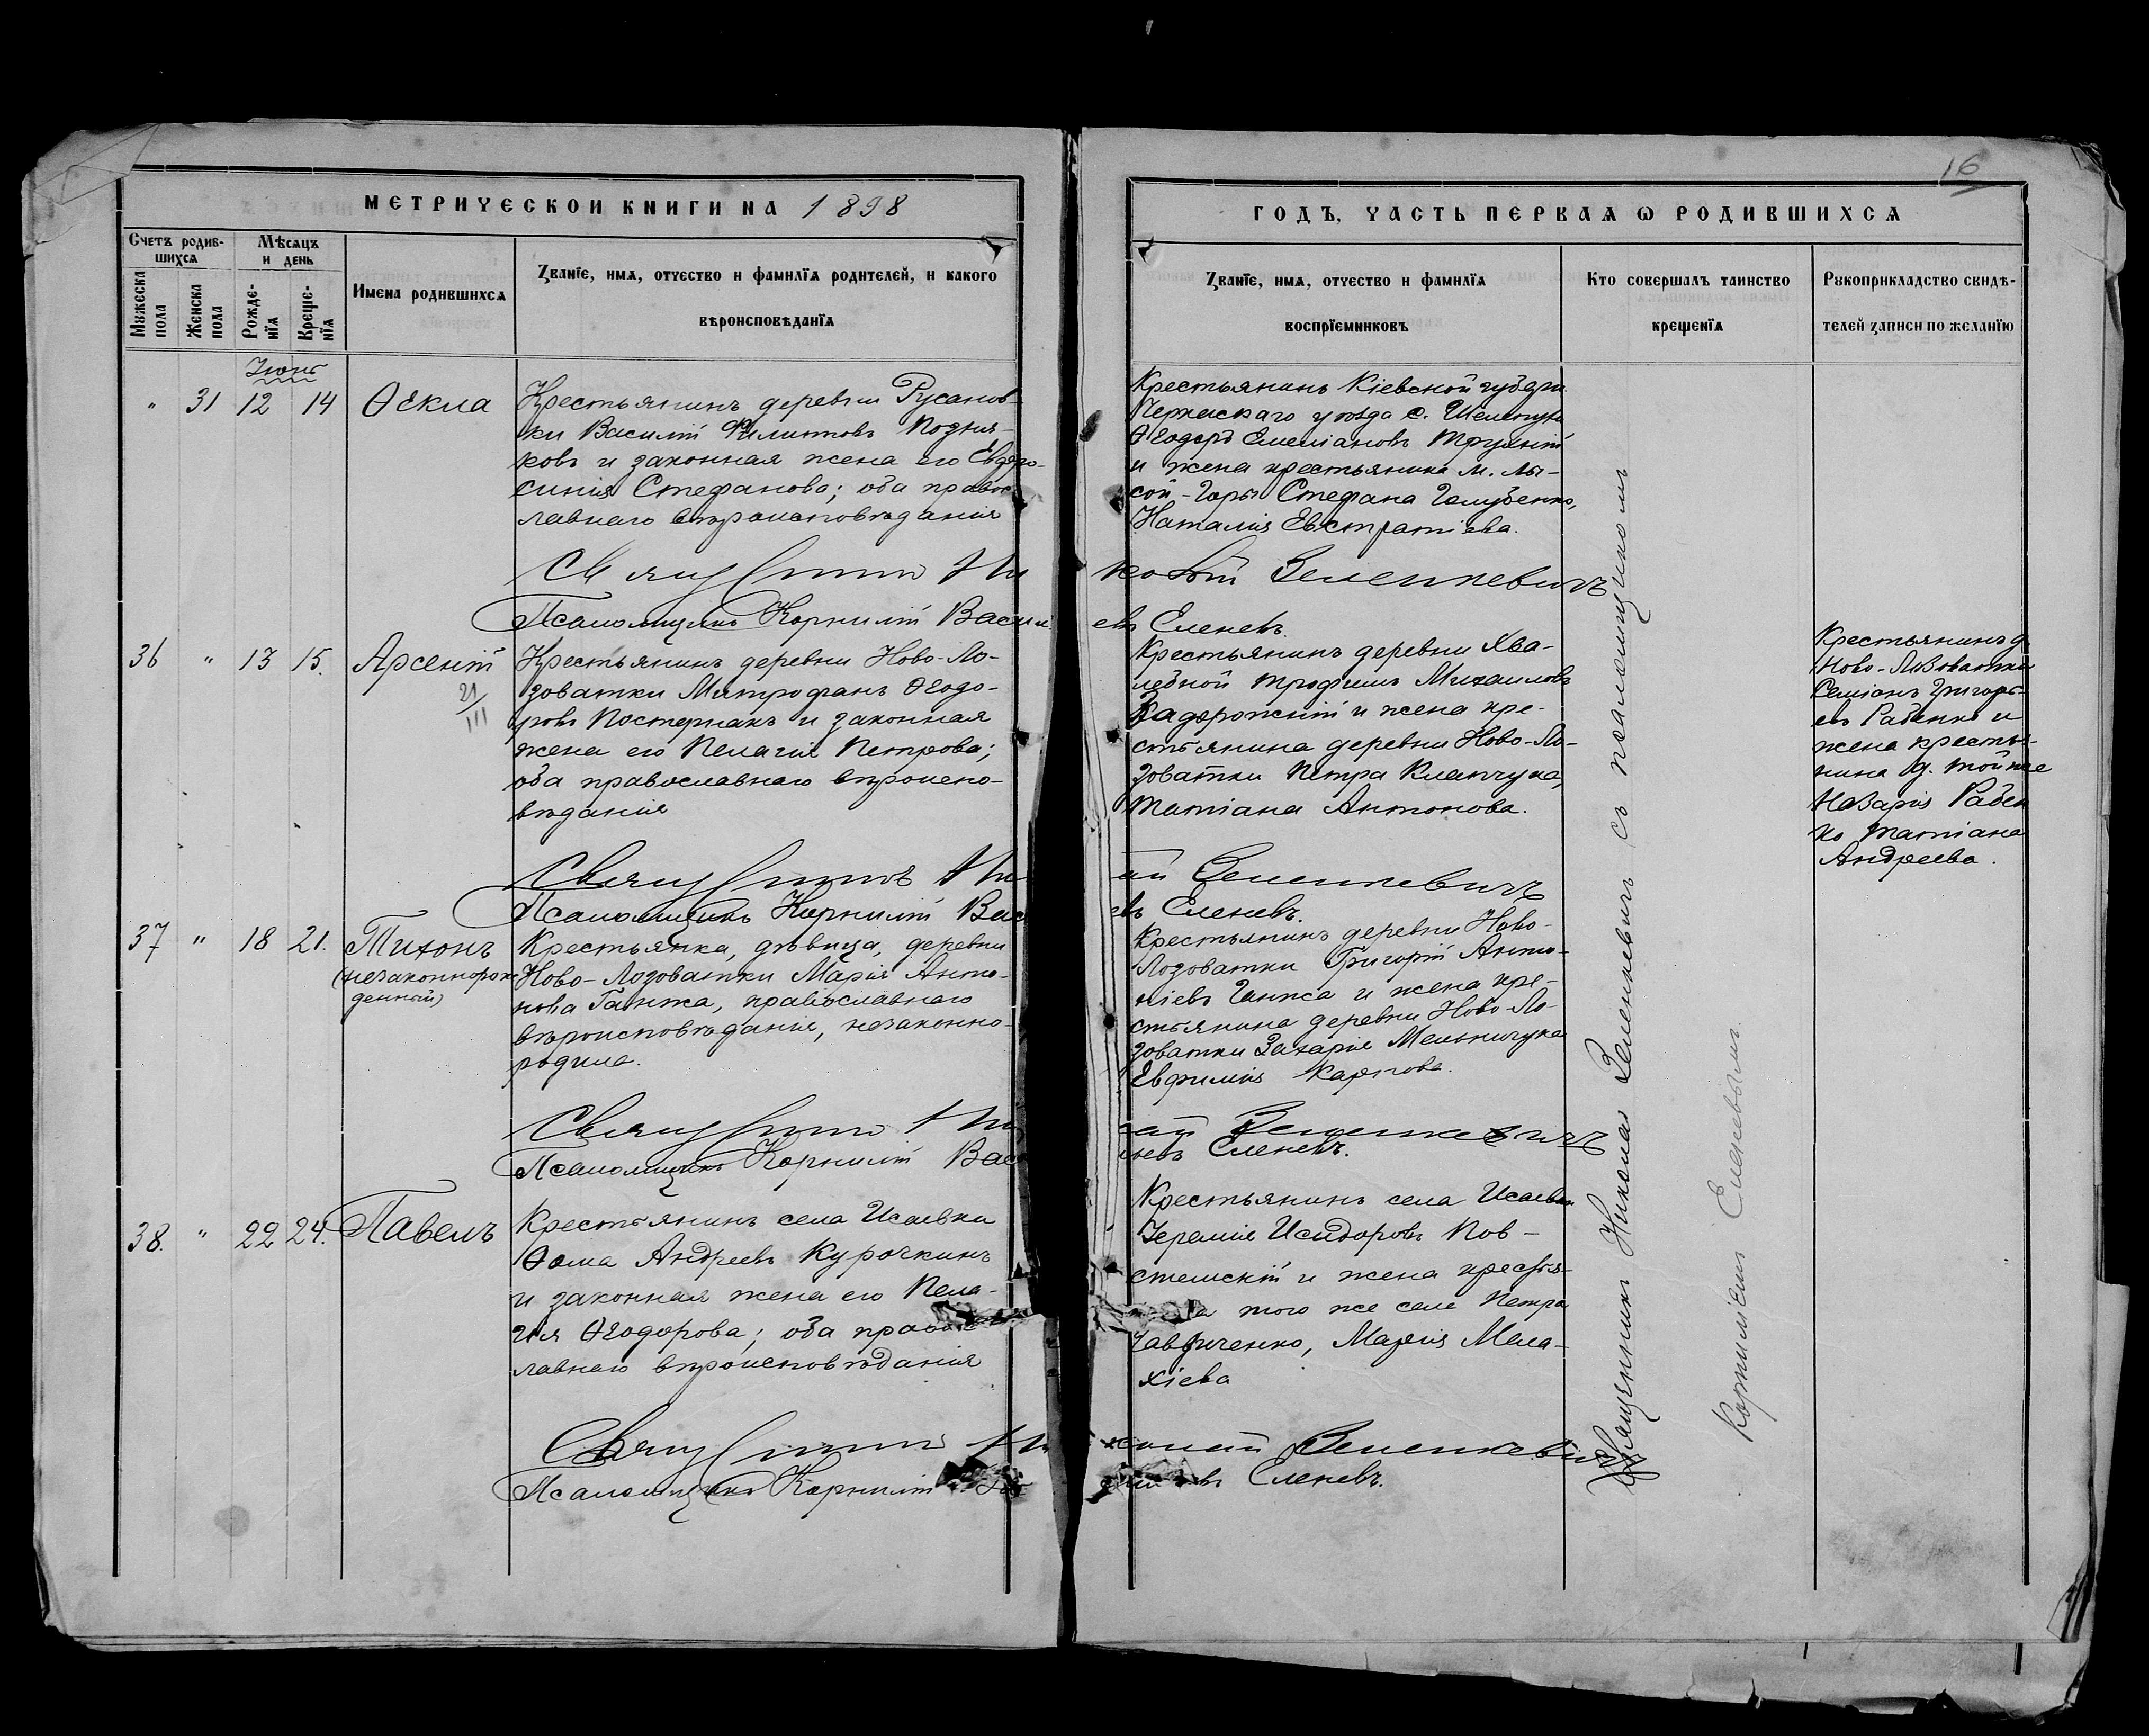 16
МЕТРИЧЕСКОИ КНИГИ НА 1898
ГОДЪ, ЧАСТЬ ПЕРВАЯ Ѡ РОДИВШИХСЯ
Счетъ родив-
шихся
Мужеска пола
Женска пола
Мѣсяцъ
и день
Рожде-
нїя
Креще-
нїя
Имена родившихся
Званїе, имя, отчество и фамилїя родителей, и какого
вѣроисповѣданїя
Званїе, имя, отчество и фамилїя
воспрїемниковъ
Кто совершалъ таинство
крещенїя
Рукоприкладство свидѣ-
телей записи по желанїю
Іюнь
" 31 12 14 Ѳекла
Крестьянинъ деревни Русанов-
ки Василій Филиповъ Позня-
ковъ и законная жена его Евдро-
синія Стефанова; оба правос-
лавнаго вѣроисповѣданія
Крестьянинъ Кіевской губерн.
Черкаскаго уѣзда с.
Ѳеодоръ Емеліановъ
и жена крестьянина м. Лы-
сой-Горы Стефана Голубенко,
Наталія Евстратіева.
Священникъ Николай Зеленкевичъ
Псаломщикъ Корнилій Васильевъ Еленевъ.
36 " 13 15. Арсеній
21/III
Крестьянинъ деревни Ново-Ло-
зоватки Митрофанъ Ѳеодо-
ровъ Постернакъ и законная
жена его Пелагія Петрова;
оба православнаго вѣроиспо-
вѣданія
Крестьянинъ деревни Хва-
лебной Трофимъ Михаиловъ
Задорожній и жена кре-
стьянина деревни Ново-Ло-
зоватки Петра Клапчука,
Татіана Антонова.
Крестьянинъ д.
Ново-Лозоватки
Симіонъ Григорь-
евъ Рабенко и
жена крестья-
нина д. той же
Назарія Рабен
ко Татіана
Андреева.
Священникъ Николай Зеленкевичъ
Псаломщикъ Корнилій Васильевъ Еленевъ.
37 " 18 21. Тихонъ
(незаконнорож-
денный)
Крестьянка, дѣвица, деревни
Ново-Лозоватки Марія Анто-
нова Ганжа, православнаго
вѣроисповѣданія, незаконно-
родила.
Крестьянинъ деревни Ново-
Лозоватки Григорій Анто-
ніевъ Ганжа и жена кре-
стьянина деревни Ново-Ло-
зоватки Захарія Мельничука
Евфимія Карпова.
Священникъ Николай Зеленкевичъ
Псаломщикъ Корнилій Васильевъ Еленевъ.
38. " 22 24. Павелъ
Крестьянинъ села Исаевки
Ѳома Андреевъ Курочкинъ
и законная жена его Пела-
гія Ѳеодорова; оба правос-
лавнаго вѣроисповѣданія
Крестьянинъ села Исаевки
Іеремія Исидоровъ Пов-
стемскій и жена крестья-
того же села Петра
Гавриченко, Марія Мала-
хіева
Священникъ Николай Зеленкевичъ
Псаломщикъ Корнилій Еленевъ.
Священникъ Николай Зеленкевичъ съ псаломщикомъ
Корниліемъ Еленевымъ.